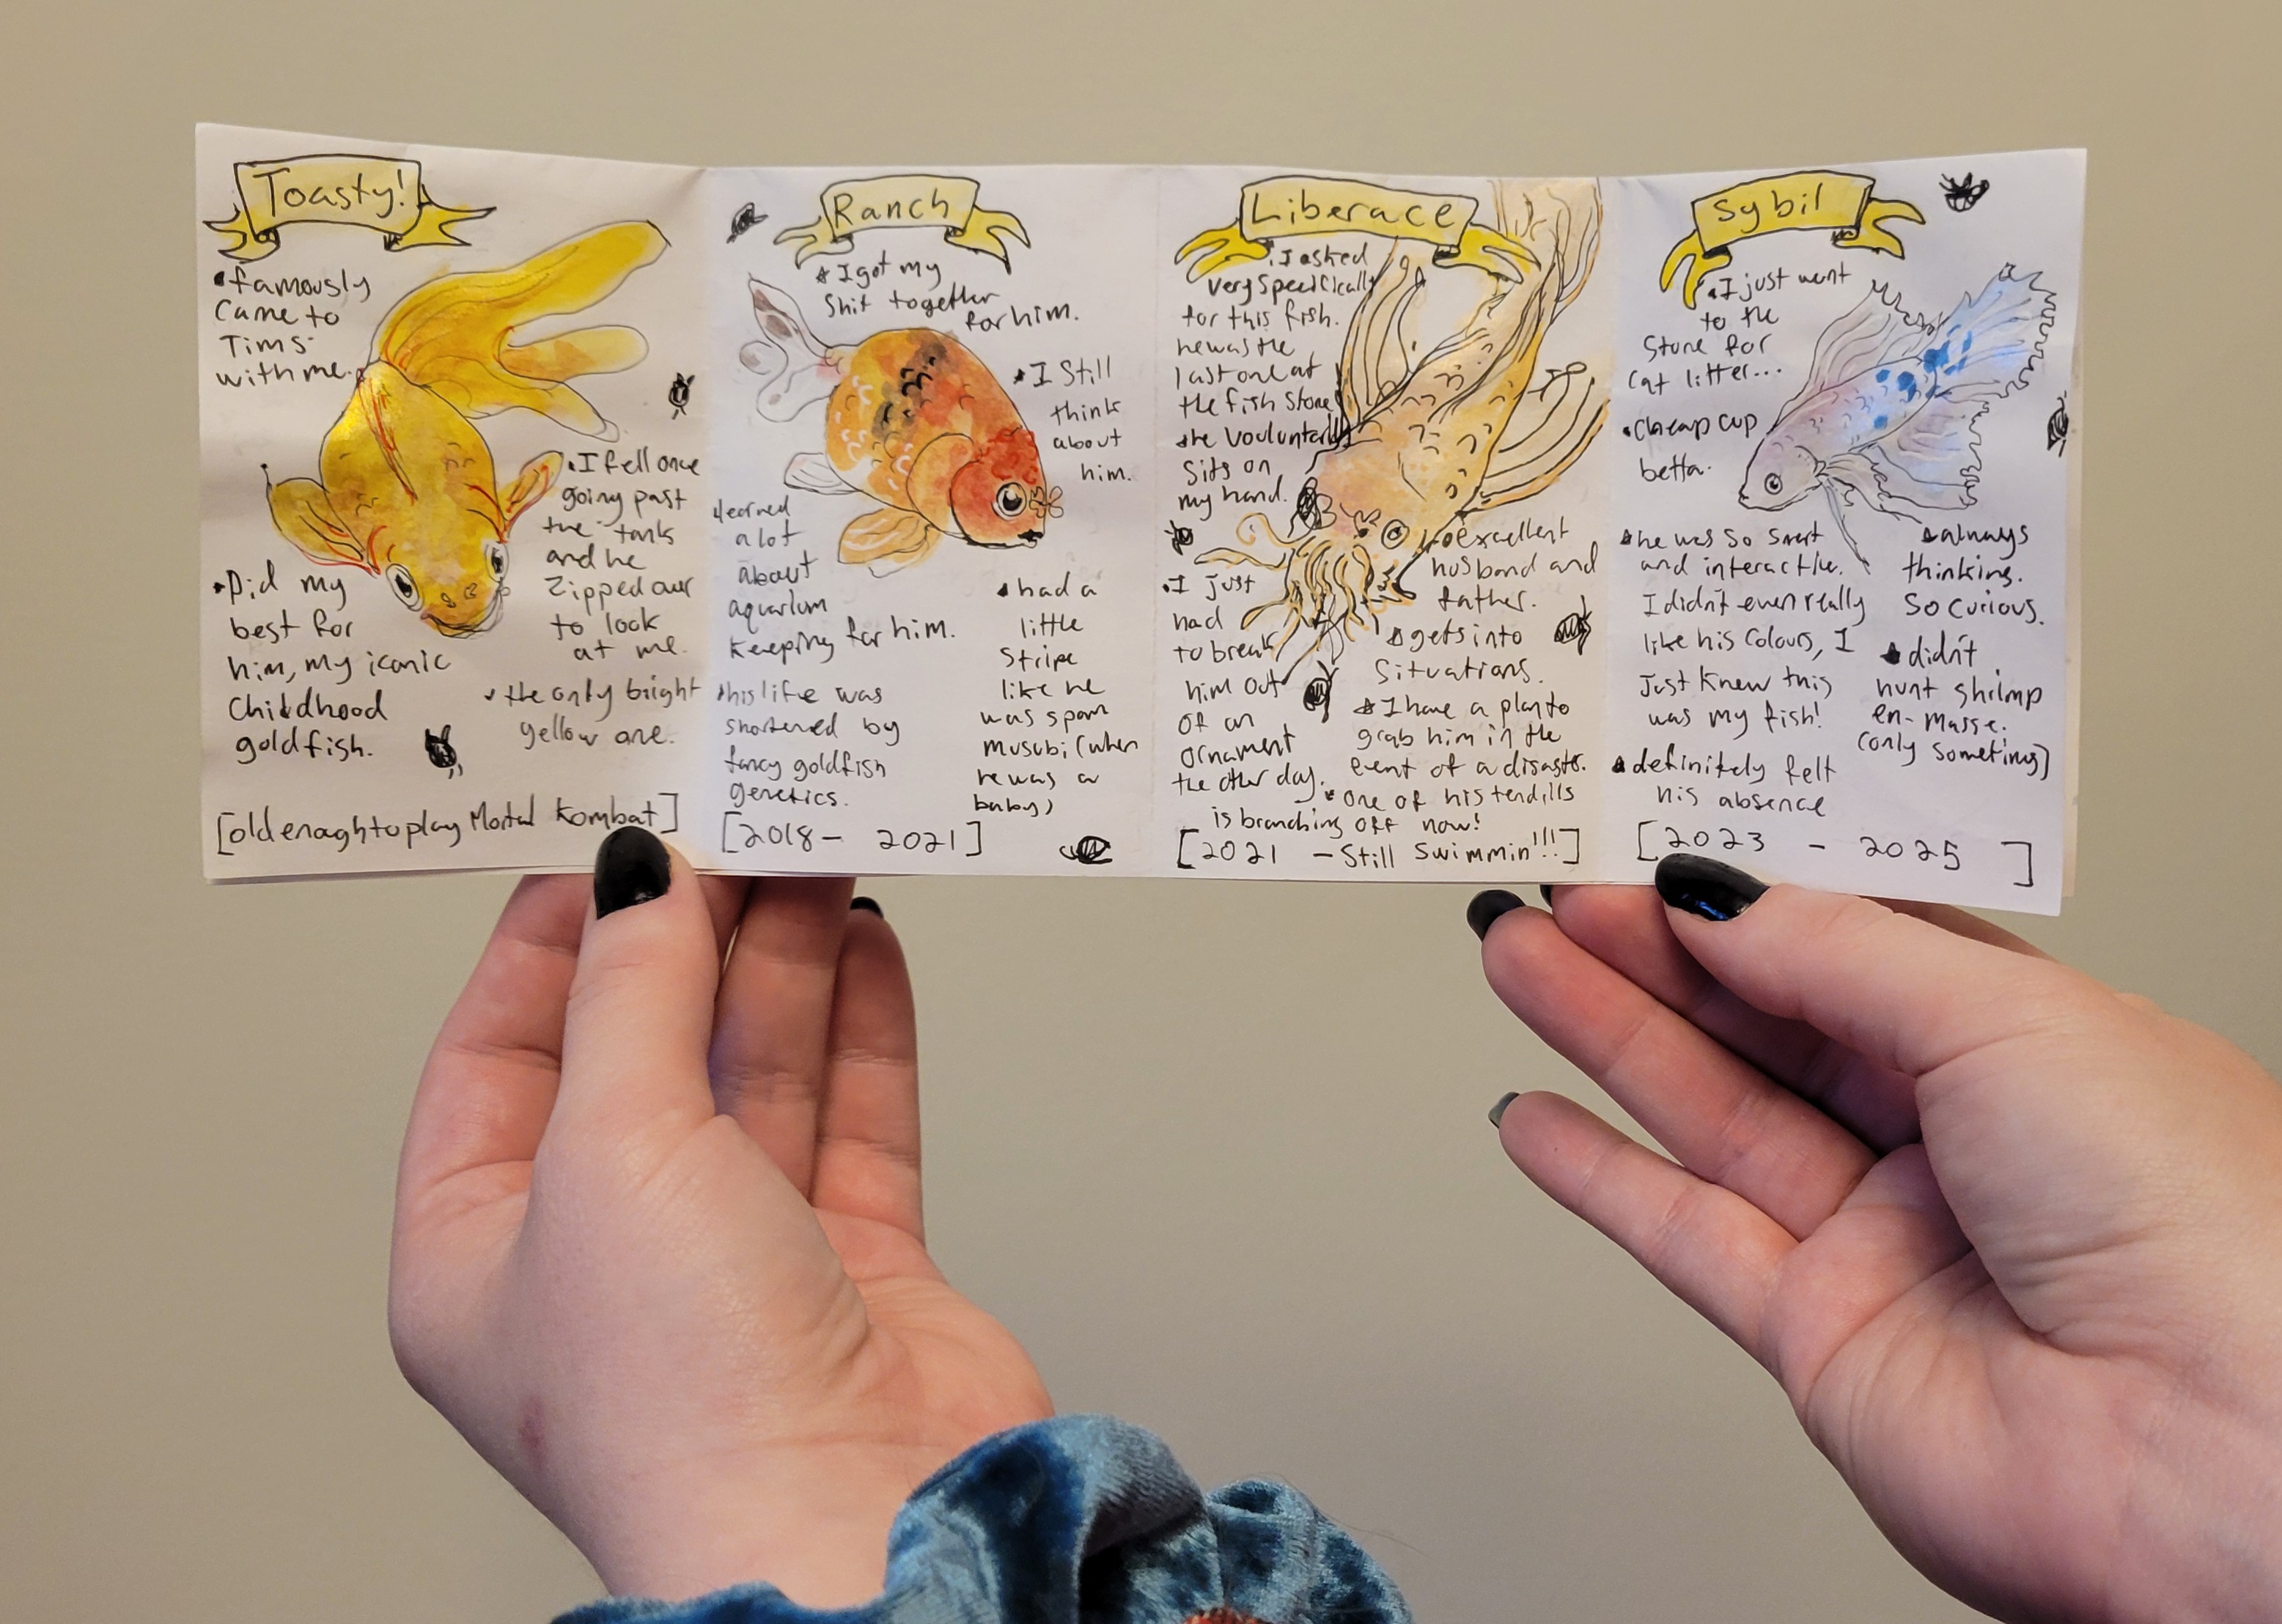 Toasty!
•famously
came to
Tims
with me.
•I fell once
going past
the tank
and he
zipped our
to look
at me.
•Did my
best for
him, my iconic
Childhood
goldfish.
•the only bright
yellow one.
[old enough to play Mortal Kombat]
Ranch
•I got my
Shit together
for him.
•I Still
think
about
him.
•learned
a lot
about
aquarium
keeping for him.
•had a
little
Stripe
like he
was spam
musubi (when
he was a
baby)
•his life was
shortened by
fancy goldfish
genetics.
[2018 - 2021]
Liberace
•I asked
very specifically
for this fish.
he was the
last one at
the fish store
•he
Sits on
my hand.
•excellent
husband and
father.
•I just
had
to break
him out
of an
ornament
the other day.
•gets into
Situations.
•I have a plan to
grab him in the
event of a disaster.
•one of his tendills
is branching off now!
[2021 - Still Swimmin'!!!]
Sybil
•I just went
to the
Store for
Cat litter...
•Cheap cup
betta.
•he was so smart
and interactive.
I didn't even really
like his colours, I
Just knew this
was my fish!
•always
thinking.
So curious.
•didn't
hunt shrimp
en-masse.
(only sometimes)
•definitely felt
his absence
[2023 - 2025]